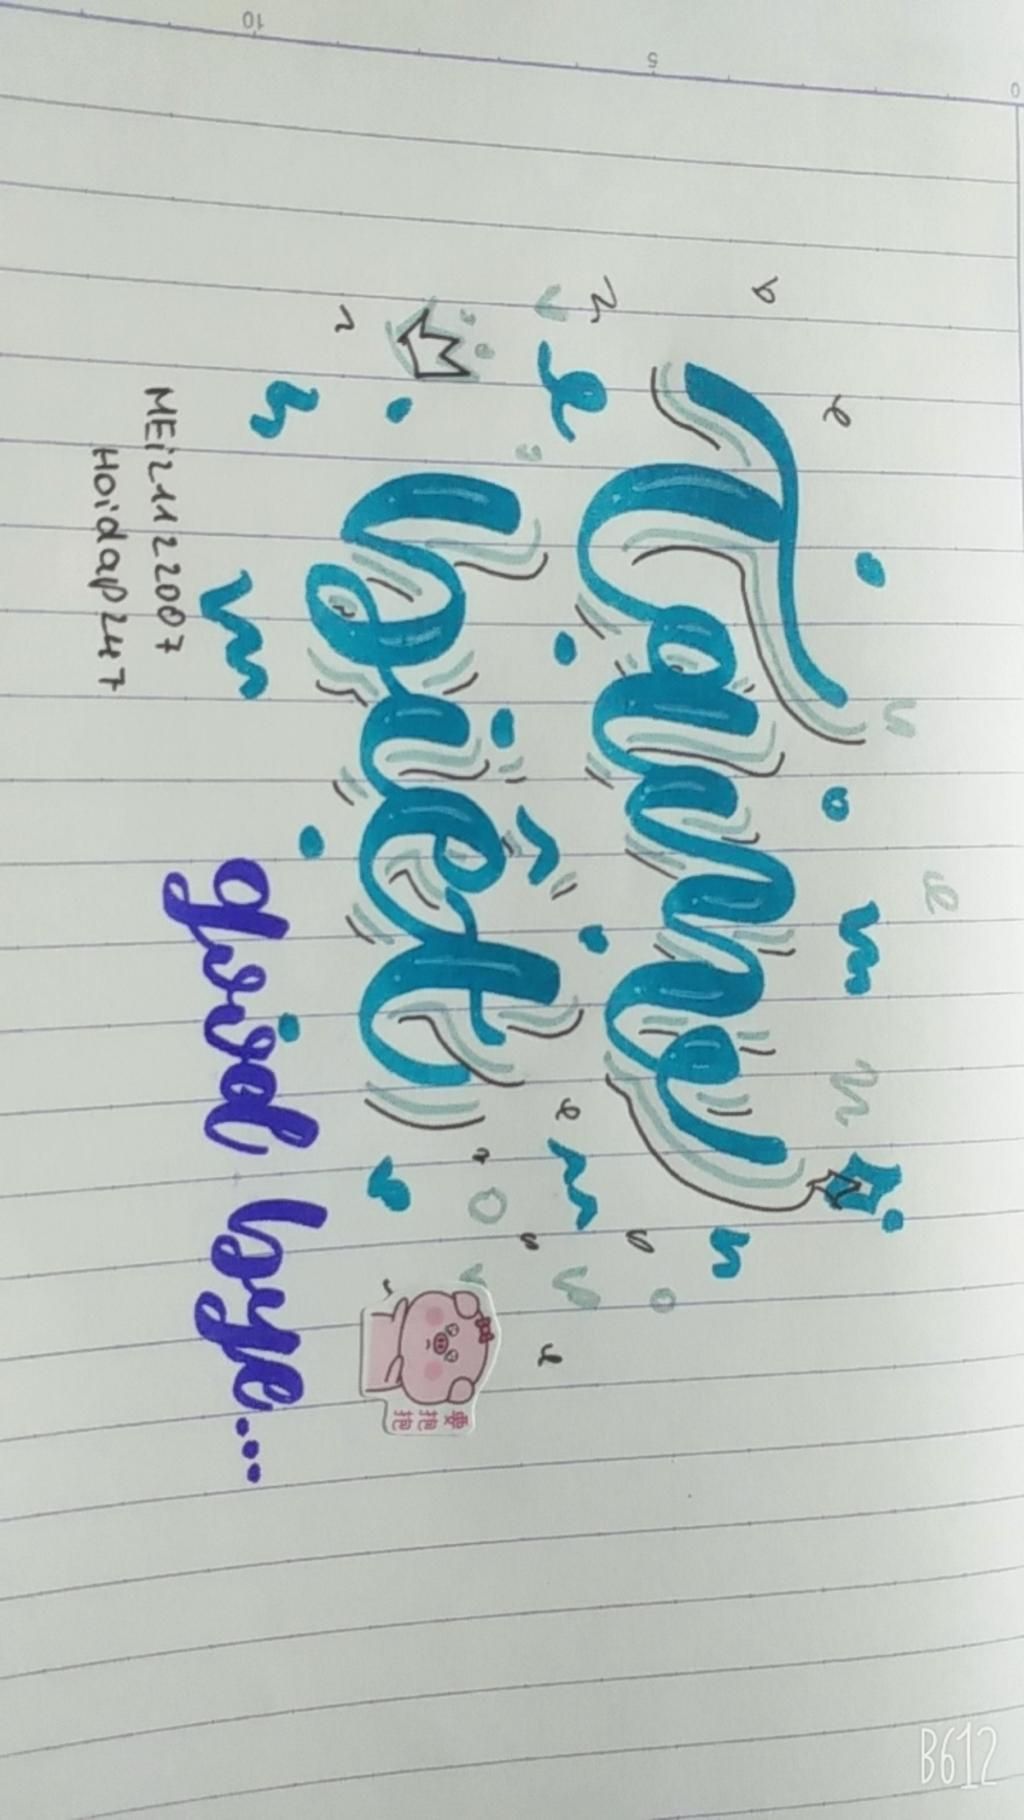 Tạm
biệt
good bye...
MEi21122007
Hoidap247
要
抱
抱
10
5
0
B612